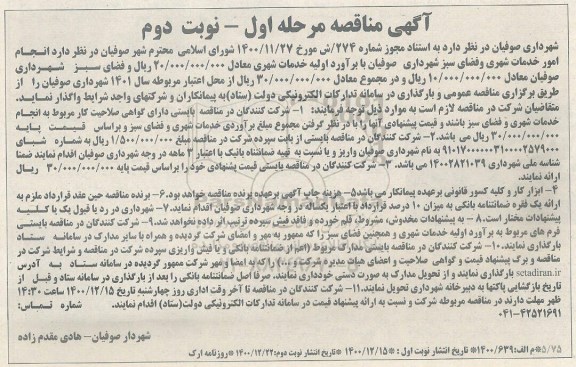 آگهی مناقصه مرحله اول – نوبت دوم
شهرداری صوفیان در نظر دارد به استناد مجوز شماره ۲۷۴/ش مورخ ۱۴۰۰/۱۱/۲۷ شورای اسلامی محترم شهر صوفیان در نظر دارد انجام
امور خدمات شهری وفضای سبز شهرداری صوفیان با برآورد اولیه خدمات شهری معادل ۲۰/۰۰۰/۰۰۰/۰۰۰ ریال و فضای سبز شهرداری
صوفیان معادل ۱۰/۰۰۰/۰۰۰/۰۰۰ ریال و در مجموع معادل ۳۰/۰۰۰/۰۰۰/۰۰۰ ریال از محل اعتبار مربوطه سال ۱۴۰۱ شهرداری صوفیان را از
طریق برگزاری مناقصه عمومی و بارگذاری در سامانه تدارکات الکترونیکی دولت (ستاد)به پیمانکاران و شرکتهای واجد شرایط واگذار نماید.
متقاضیان شرکت در مناقصه لازم است به موارد ذیل توجه فرمایند: ۱- شرکت کنندگان در مناقصه بایستی دارای گواهی صلاحیت کار مربوط به انجام
خدمات شهری و فضای سبز باشند و قیمت پیشنهادی آنها را با در نظر گرفتن مجموع مبلغ برآوردی خدمات شهری و فضای سبز و براساس قیمت پایه
۳۰/۰۰۰/۰۰۰/۰۰۰ ریال می باشد.۲- شرکت کنندگان در مناقصه بایستی از بابت سپرده شرکت در مناقصه مبلغ ۱/۵۰۰/۰۰۰/۰۰۰ ریال به شماره شبای
به نام شهرداری صوفیان واریز و یا نسبت به تهیه ضمانتنامه بانکی با اعتبار ۳ ماهه در وجه شهرداری صوفیان اقدام نمایند ضمنا
شناسه ملی شهرداری ۱۴۰۰۲۸۲۱۰۳۹ می باشد. ۳- شرکت کنندگان در مناقصه بایستی قیمت پیشنهادی خود را بر اساس قیمت پایه ۳۰/۰۰۰/۰۰۰/۰۰۰ ریال
ارائه نمایند.
۴- ابزار کار و کلیه کسور قانونی برعهده پیمانکار می باشد۵- هزینه چاپ آگهی برعهده برنده مناقصه خواهد بود.۶- برنده مناقصه حین عقد قرارداد ملزم به
ارائه یک فقره ضمانتنامه بانکی به میزان ۱۰ درصد قرارداد با اعتبار یکساله در وجه شهرداری صوفیان اقدام نماید.۷- شهرداری در رد یا قبول یک یا کلیه
پیشنهادات مختار است.۸ – به پیشنهادات مخدوش، مشروط، قلم خورده و فاقد فیش سپرده ترتیب اثر داده نخواهد شد.۹- شرکت کنندگان در مناقصه بایستی
فرم های مربوط به برآورد اولیه خدمات شهری و همچنین فضای سبز را که ممهور به مهر و امضای شرکت گردیده و همراه با سایر مدارک در سامانه ستاد
بارگذاری نمایند.۱۰- شرکت کنندگان در مناقصه بایستی مدارک مربوط (اعم از ضمانتنامه بانکی و یا فیش واریزی سپرده شرکت در مناقصه و شرایط شرکت در
مناقصه و برگ پیشنهاد قیمت و گواهی صلاحیت و اعضای هیات مدیره شرکت و ...) را که به امضا ومهر شرکت ممهور گردیده در سامانه ستاد به آدرس
setadiran.ir بارگذاری نمایند و از تحویل مدارک به صورت دستی خودداری نمایند. صرفا اصل ضمانتنامه بانکی را بعد از بارگذاری در سامانه ستاد و قبل از
تاریخ بازگشایی پاکتها به دبیرخانه شهرداری تحویل نمایند.۱۱- شرکت کنندگان در مناقصه تا آخر وقت اداری روز چهارشنبه تاریخ ۱۴۰۰/۱۲/۱۵ ساعت ۱۴:۳۰
ظهر مهلت دارند در مناقصه مربوطه شرکت و نسبت به ارائه پیشنهاد قیمت در سامانه تدارکات الکترونیکی دولت(ستاد) اقدام نمایند. شماره تماس:
۰۴۱-۴۲۵۲۱۶۹۱
شهردار صوفیان – هادی مقدم زاده
۵/۷۵ *م الف:۱۴۰۰/۶۳۹* تاریخ انتشار نوبت اول : ۱۴۰۰/۱۲/۱۵* تاریخ انتشار نوبت دوم:۱۴۰۰/۱۲/۲۲ *روزنامه ارک